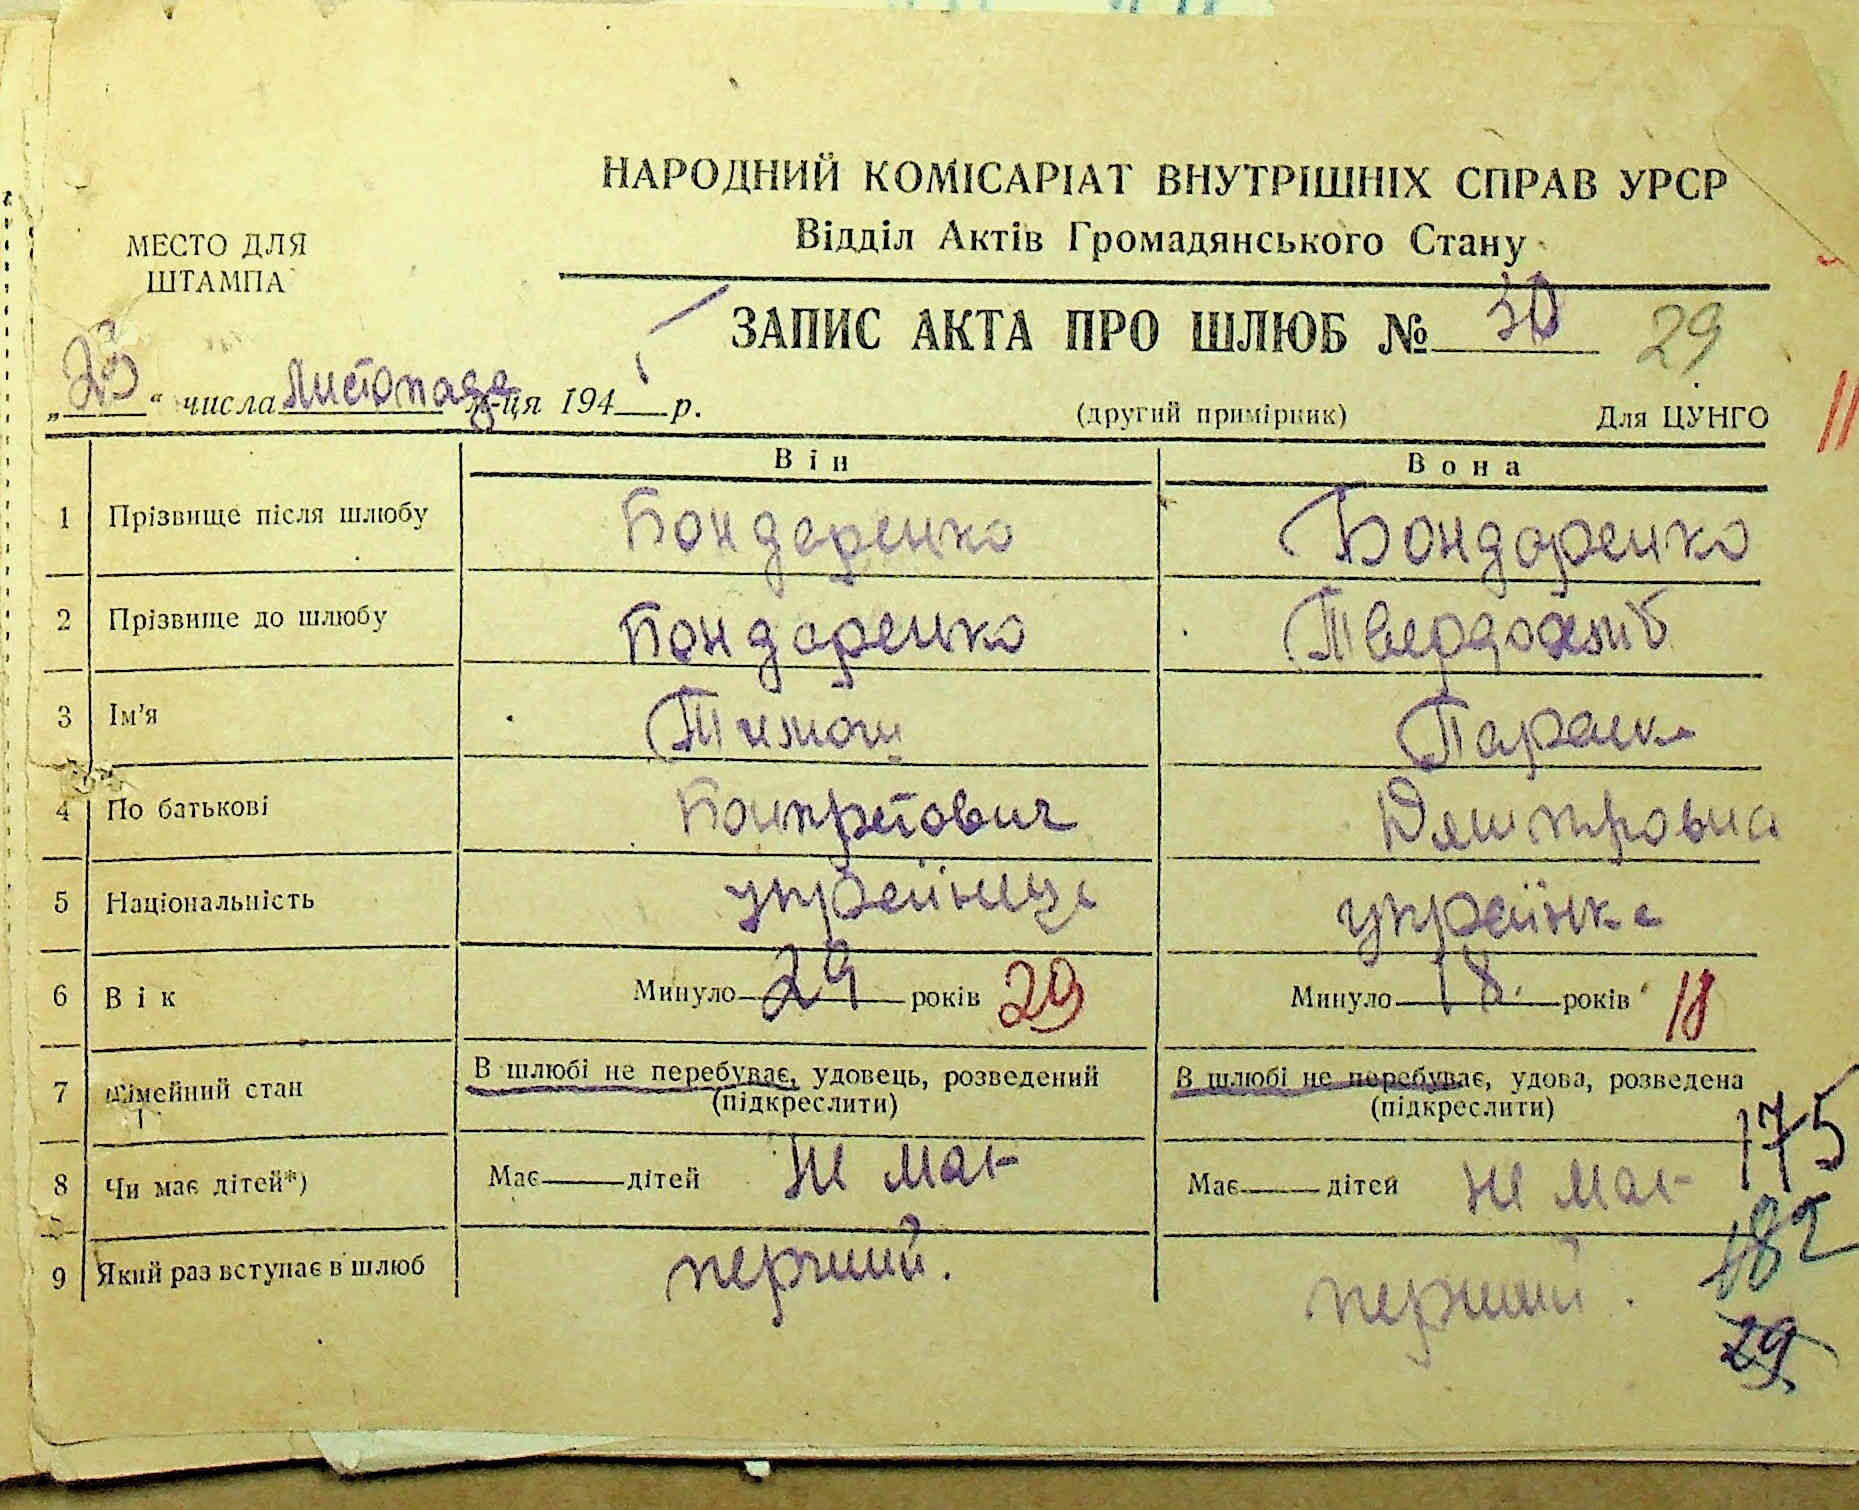 НАРОДНИЙ КОМІСАРІАТ ВНУТРІШНІХ СПРАВ УРСР
Відділ Актів Громадянського Стану
МЕСТО ДЛЯ
ШТАМПА
ЗАПИС АКТА ПРО ШЛЮБ № 30 29
„ 23 “ числа листопада м-ця 194 р.
(другий примірник) Для ЦУНГО 11
Він Вона
1 Прізвище після шлюбу Бондаренко Бондаренко
2 Прізвище до шлюбу Бондаренко Твердохліб
3 Ім'я Тимош Параска
4 По батькові Дмитровна
5 Національність українець українка
6 Вік Минуло 29 років 29 Минуло 18. років 18
7 Сімейний стан В шлюбі не перебуває, удовець, розведений (підкреслити) В шлюбі не перебуває, удова, розведена (підкреслити)
175
8 Чи має дітей*) Має дітей не має Має дітей не має
182
9 Який раз вступає в шлюб перший. перший.
29